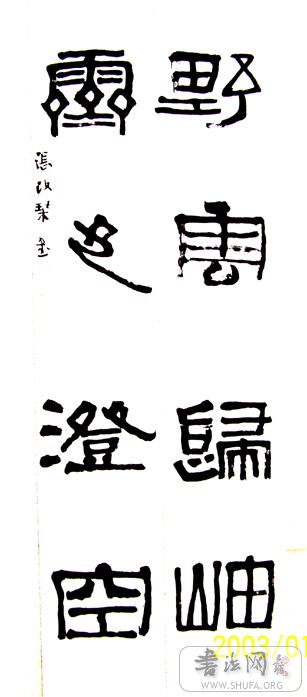 野雲歸岫
霽色澄空
張改琴書
2003/01
书法网
WWW.SHUFA.ORG